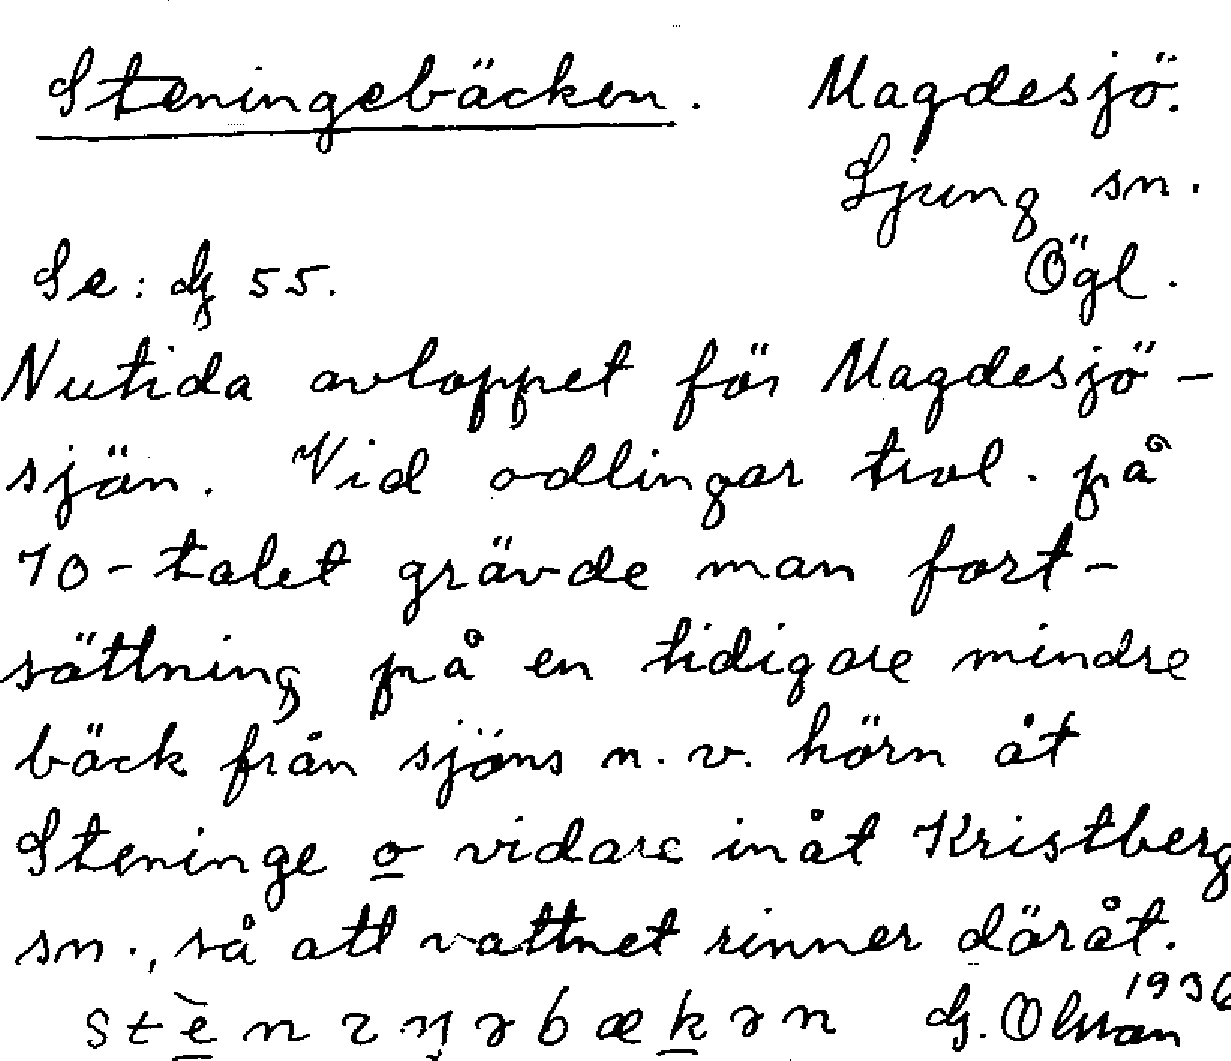 Steningebäcken. Magdesjö.
Ljung sn.
Se: dg 55. Ögl.
Nutida avloppet för Magdesjö-
sjön. Vid odlingar trol. på
70-talet grävde man fort-
sättning på en tidigare mindre
bäck från sjöns n.v. hörn åt
Steninge o vidare inåt Kristberg
sn., så att vattnet rinner däråt.
1936
G. Olsson